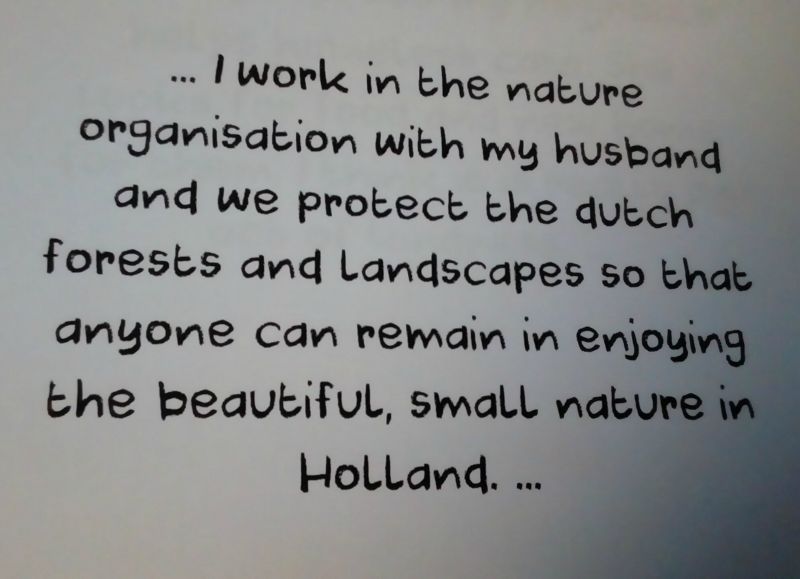 ... I work in the nature
organisation with my husband
and we protect the dutch
forests and landscapes so that
anyone can remain in enjoying
the beautiful, small nature in
Holland. ...